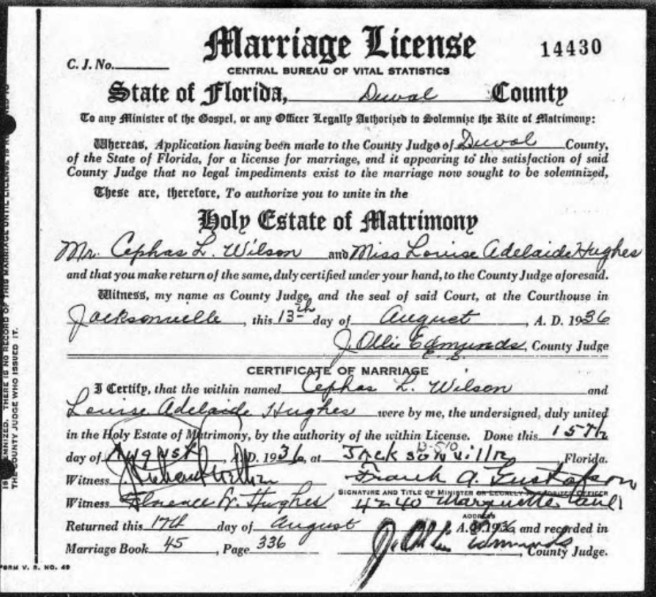 Marriage License
14430
C. J. No.
CENTRAL BUREAU OF VITAL STATISTICS
State of Florida, Duval County
To any Minister of the Gospel, or any Officer Legally Authorized to Solemnize the Rite of Matrimony:
Whereas, Application having been made to the County Judge of Duval County,
of the State of Florida, for a license for marriage, and it appearing to the satisfaction of said
County Judge that no legal impediments exist to the marriage now sought to be solemnized,
These are, therefore, To authorize you to unite in the
Holy Estate of Matrimony
Mr. Cephas L. Wilson and Miss Louise Adelaide Hughes
and that you make return of the same, duly certified under your hand, to the County Judge aforesaid.
Witness, my name as County Judge, and the seal of said Court, at the Courthouse in
Jacksonville, this 13th day of August, A. D. 1936
J Ollie Edmunds, County Judge
CERTIFICATE OF MARRIAGE
I Certify, that the within named Cephas L. Wilson and
Louise Adelaide Hughes were by me, the undersigned, duly united
in the Holy Estate of Matrimony, by the authority of the within License. Done this 15th
day of August A. D. 1936, at Jacksonville, Florida.
Witness Frank A. Gustafson
SIGNATURE AND TITLE OF MINISTER OR LEGALLY AUTHORIZED OFFICER
Witness Florence W. Hughes 4240 Marquette
ADDRESS
Returned this 17th day of August A. D. 1936 and recorded in
Marriage Book 45, Page 336 J. Ollie Edmunds, County Judge.
FORM V. S. NO. 49
THERE IS NO RECORD OF THIS MARRIAGE UNTIL LICENSE IS
THE COUNTY JUDGE WHO ISSUED IT.